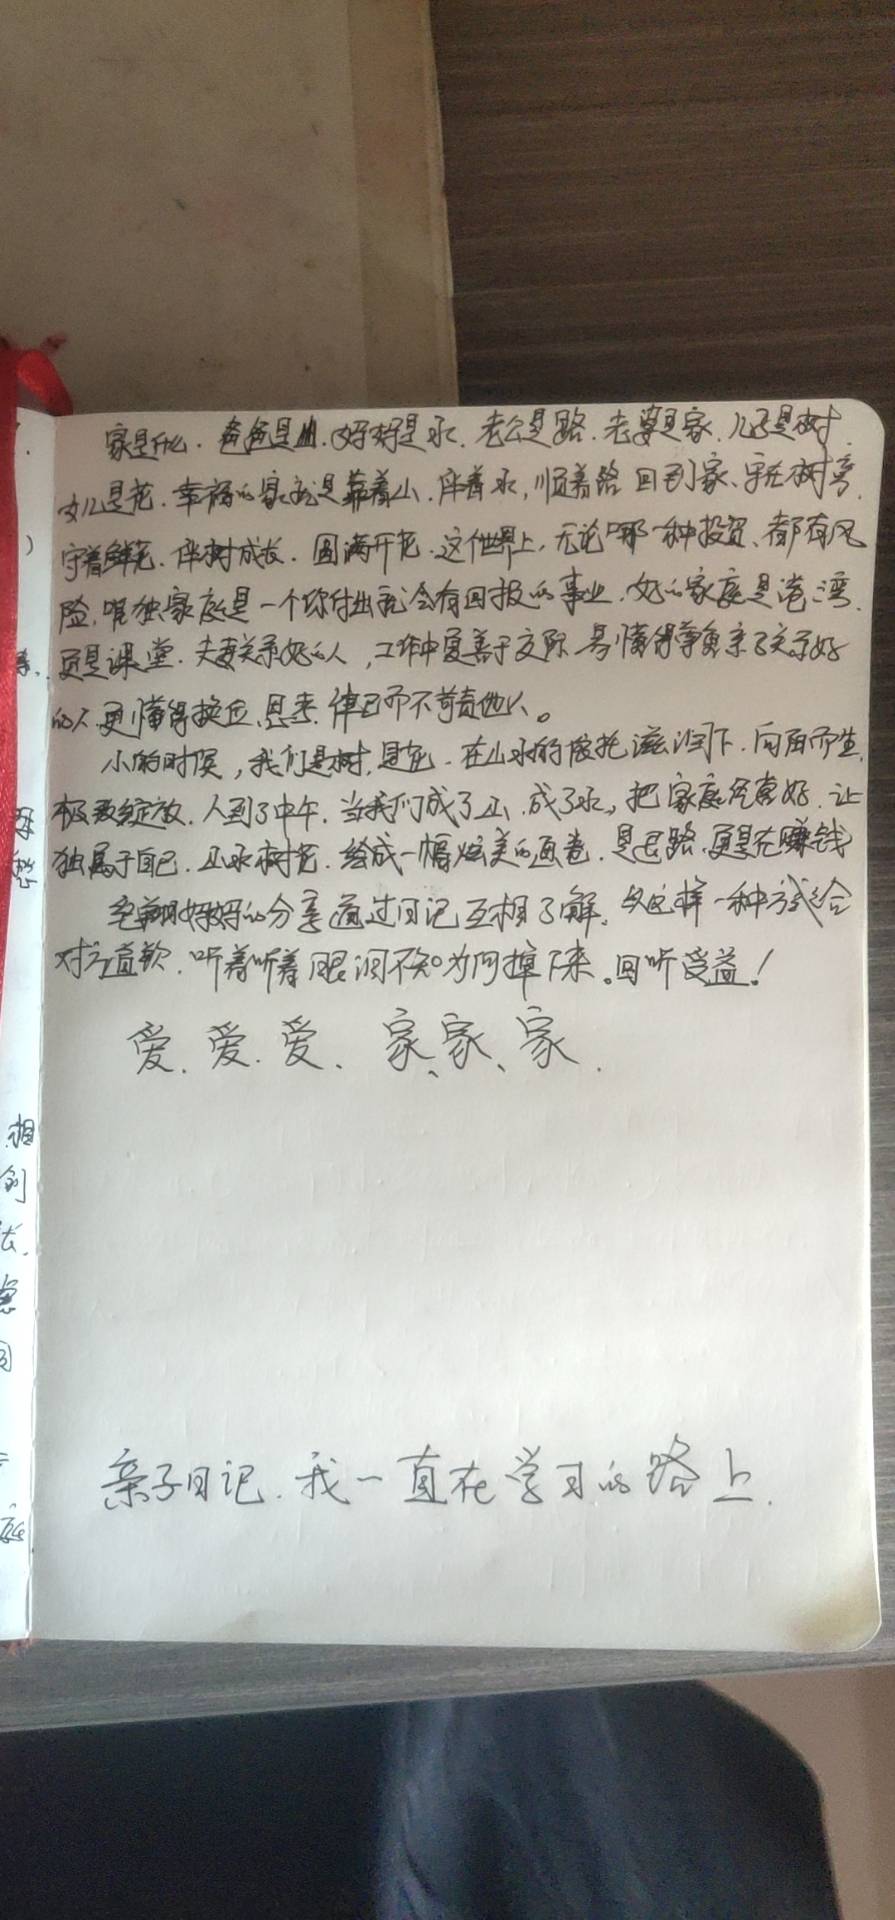 家是什么.爸爸是山.妈妈是水.老公是路.老婆是家.儿子是树.
女儿是花.幸福的家就是靠着山.伴着水,顺着路回到家、守在树旁.
守着鲜花.伴树成长.圆满开花.这个世界上,无论哪一种投资、都有风
险,唯独家庭是一个你付出就会有回报的事业.好的家庭是港湾.
更是课堂.夫妻关系好的人,工作中更善于交际.易懂得尊重亲子关系好
的人.更懂得换位思考.律己而不苛责他人。
小的时候,我们是树.是花.在山水的依托滋润下.向阳而生.
极致绽放.人到了中年.当我们成了山.成了水,把家庭经营好.让
独属于自己.山水树花.绘成一幅炫美的画卷.是退路.更是在赚钱
妈妈的分享通过日记互相了解.以这样一种方式给
对方道歉.听着听着眼泪不知为何掉下来。回听受益!
爱.爱.爱、家、家、家.
亲子日记.我一直在学习的路上.
相
创